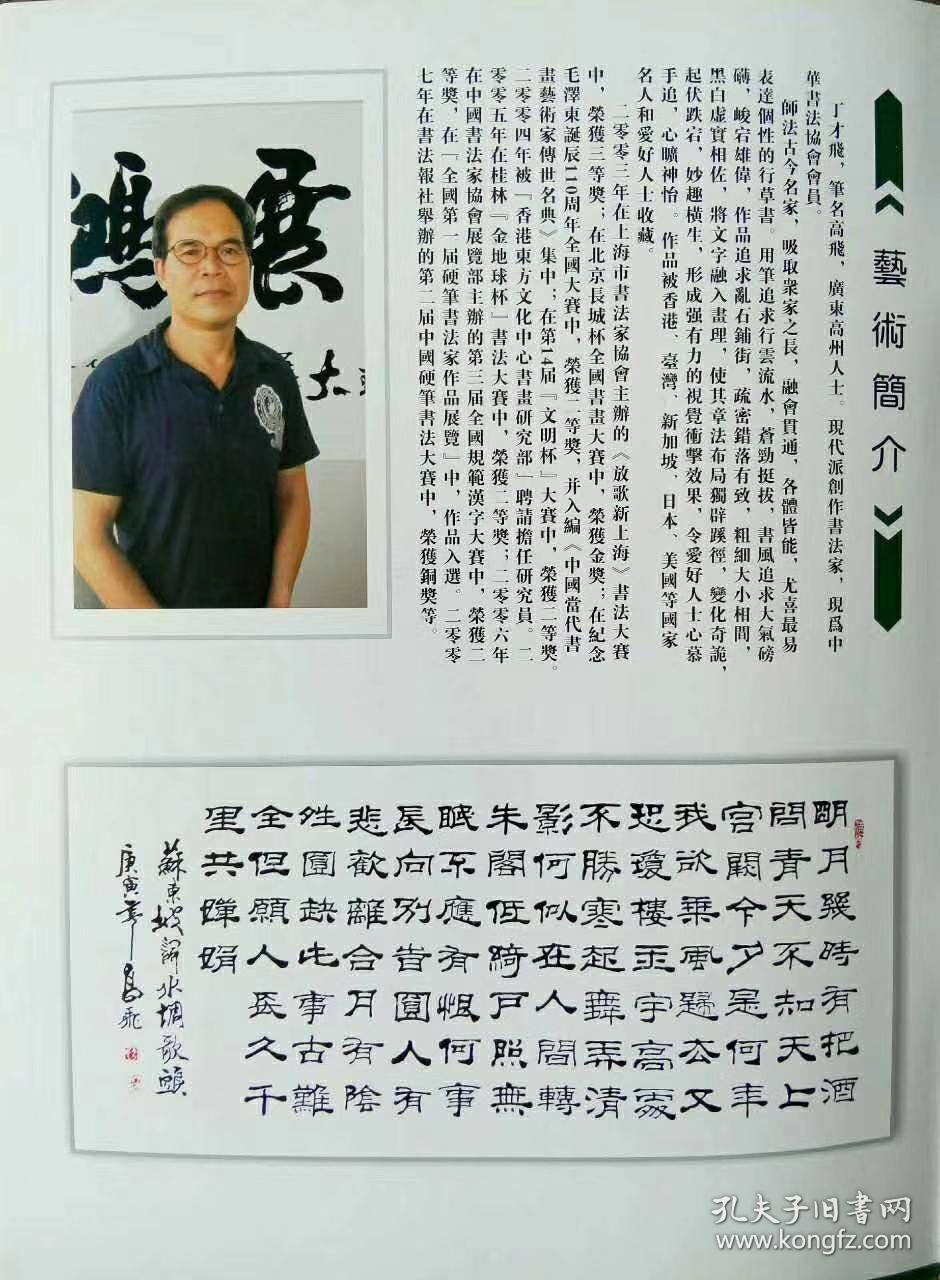 藝術簡介
丁才飛，筆名高飛，廣東高州人士。現代派創作書法家，現爲中
華書法協會會員。
師法古今名家，吸取衆家之長，融會貫通，各體皆能，尤喜最易
表達個性的行草書。用筆追求行雲流水，蒼勁挺拔，書風追求大氣磅
礴，峻宕雄偉，作品追求亂石鋪街，疏密錯落有致，粗細大小相間，
黑白虛實相佐，將文字融入畫理，使其章法布局獨辟蹊徑，變化奇詭，
起伏跌宕，妙趣橫生，形成强有力的視覺衝擊效果，令愛好人士心慕
手追，心曠神怡。作品被香港、臺灣、新加坡、日本、美國等國家
名人和愛好人士收藏。
二零零三年在上海市書法家協會主辦的《放歌新上海》書法大賽
中，榮獲三等獎；在北京長城杯全國書畫大賽中，榮獲金獎；在紀念
毛澤東誕辰110周年全國大賽中，榮獲二等獎，并入編《中國當代書
畫藝術家傳世名典》集中；在第14届『文明杯』大賽中，榮獲二等獎。
二零零四年被『香港東方文化中心書畫研究部』聘請擔任研究員。二
零零五年在桂林『金地球杯』書法大賽中，榮獲二等獎；二零零六年
在中國書法家協會展覽部主辦的第三届全國規範漢字大賽中，榮獲二
等獎，在『全國第一届硬筆書法家作品展覽』中，作品入選。二零零
七年在書法報社舉辦的第二届中國硬筆書法大賽中，榮獲銅獎等。
展
鴻
大
明月幾時有把酒
問青天不知天上
宮闕今夕是何年
我欲乘風歸去又
恐瓊樓玉宇高處
不勝寒起舞弄清
影何似在人間轉
朱閣低綺戶照無
眠不應有恨何事
長向別昔圓人有
悲歡離合月有陰
晴圓缺此事古難
全但願人長久千
里共嬋娟
蘇東坡詞水調歌頭
庚寅年高飛
孔夫子旧书网
www.kongfz.com